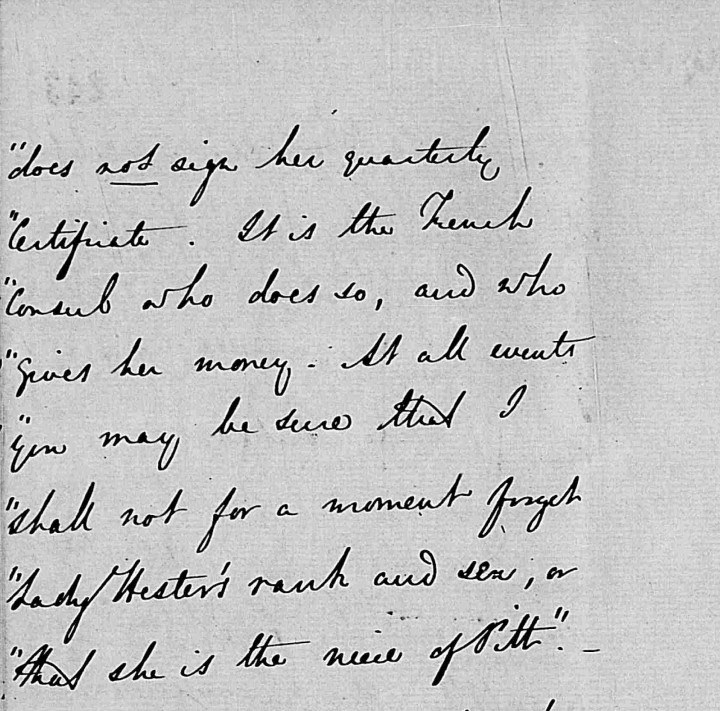 "does not sign her quarterly
"Certificate. It is the French
"Consul who does so, and who
"gives her money. At all events
"you may be sure that I
"shall not for a moment forget
"Lady Hester's rank and sex, or
"that she is the niece of Pitt". _